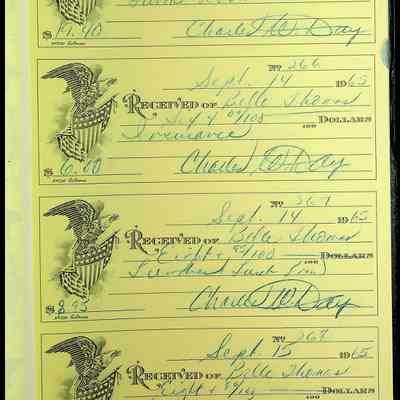 $ 17.40 Charles W. Day
No 266
Sept. 14 1965
RECEIVED OF Belle Thomas
00/100 DOLLARS
Insurance
$ 6.00 Charles W. Day
No 267
Sept. 14 1965
RECEIVED OF Belle Thomas
Eight & /100 DOLLARS
$ 8.95 Charles W. Day
No 268
Sept. 15 1965
RECEIVED OF Belle Thomas
Eight & /100 DOLLARS